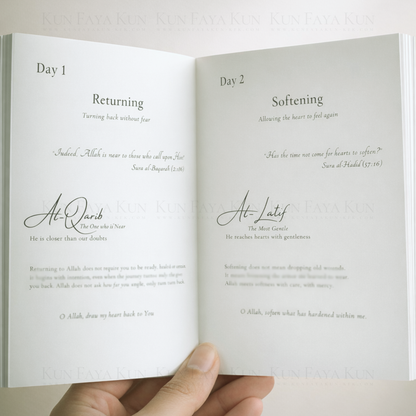 KUN FAYA KUN KUN FAYA KUN KUN FAYA KUN KUN FAYA KUN
Day 1
Returning
Turning back without fear
"Indeed, Allah is near to those who call upon Him"
Sura al-Baqarah (2:186)
Al-Qarib
The One who is Near
He is closer than our doubts
Returning to Allah does not require you to be ready.
begins with
you back. Allah does not ask how far you
O Allah, draw my heart back to You
Day 2
Softening
Allowing the heart to feel again
"Has the time not come for hearts to soften?"
Sura al-Hadid (57:16)
Al-Latif
The Most Gentle
He teaches hearts with gentleness
Softening does not mean
with care, with mercy.
O Allah, soften what has hardened within me.
KUN FAYA KUN KUN FAYA KUN KUN FAYA KUN KUN FAYA KUN